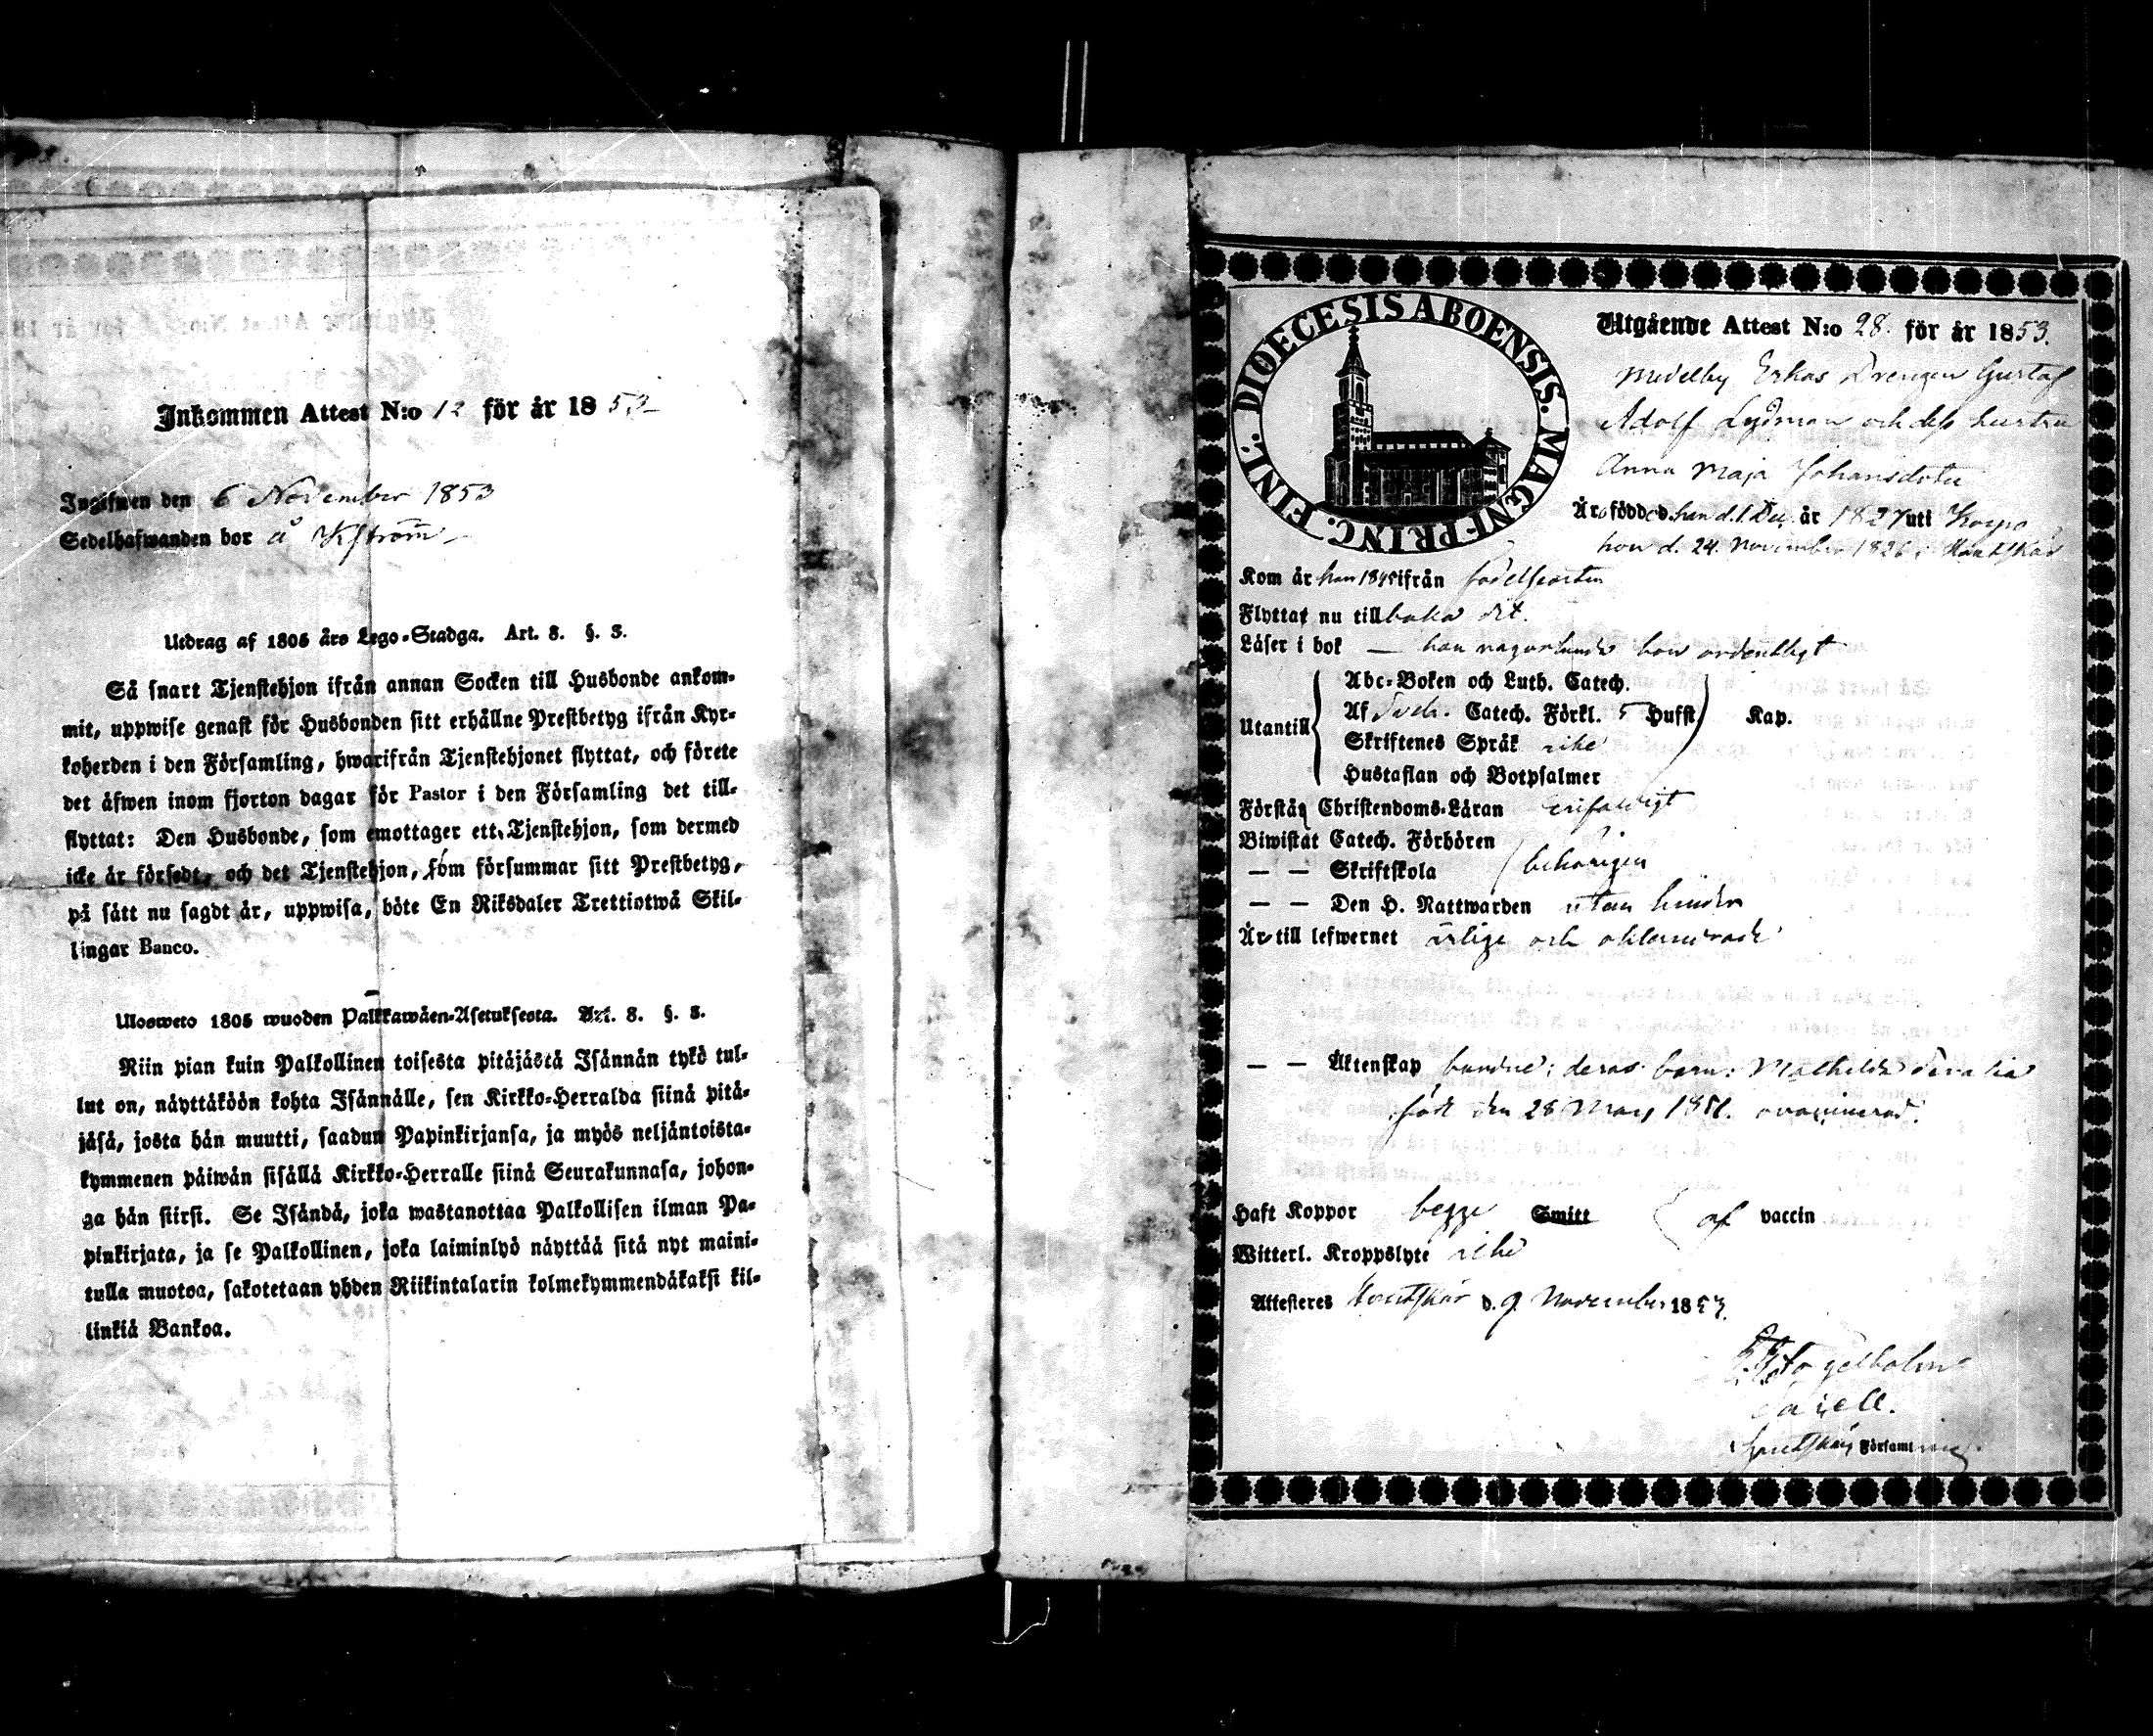 Inkommen Attest N:o 12 för år 1853
Ingifwen den 6 November 1853
Sedelhafwanden bor å
Utdrag af 1805 års Lego-Stadga. Art. 8. §. 3.
Så snart Tjenstehjon ifrån annan Socken till Husbonde ankom-
mit, uppwise genast för Husbonden sitt erhållne Prestbetyg ifrån Kyr-
koherden i den Församling, hwarifrån Tjenstehjonet flyttat, och förete
det äfwen inom fjorton dagar för Pastor i den Församling det till-
flyttat: Den Husbonde, som emottager ett Tjenstehjon, som dermed
icke är försedt, och det Tjenstehjon, som försummar sitt Prestbetyg,
på sätt nu sagdt är, uppwisa, böte En Riksdaler Trettiotwå Skil-
lingar Banco.
Ulosweto 1805 wuoden Palkkawäen-Asetuksesta. Art. 8. §. 3.
Niin pian kuin Palkollinen toisesta pitäjästä Isännän tykö tul-
lut on, näyttäköön kohta Isännälle, sen Kirkko-Herralda siinä pitä-
jäsä, josta hän muutti, saadun Papinkirjansa, ja myös neljäntoista-
kymmenen päiwän sisällä Kirkko-Herralle siinä Seurakunnasa, johon-
ga hän siirsi. Se Isändä, joka wastanottaa Palkollisen ilman Pa-
pinkirjata, ja se Palkollinen, joka laiminlyö näyttää sitä nyt maini-
tulla muotoa, sakotetaan yhden Riikintalarin kolmekymmendäkaksi kil-
linkiä Bankoa.
DIOECESIS ABOENSIS. MAGNI-PRINC. FINL.
Utgående Attest N:o 28. för år 1853.
Medelby Erkas Drengen Gustaf
Adolf Lydman och dess hustru
Anna Maja Johansdotter
Äro födde han d. 1. Dec. år 1827 uti Korpo
hon d. 24. November 1826 i Houtskär
Kom år han 1848 ifrån födelseorten
Flyttat nu tillbaka dit.
Läser i bok — han någorlunda hon ordentligt
Abc-Boken och Luth. Catech.
Utantill Af Sveb. Catech. Förkl. 5 Hufst. Kap.
Skriftenes Språk icke
Hustaflan och Botpsalmer
Förstå Christendoms-Läran enfaldigt
Biwistat Catech. Förhören
— — Skriftskola behörigen
— — Den H. Nattwarden utan hinder
Är till lefwernet ärlige och oklanderade
— — Äktenskap bundne; deras barn: Mathilda
född den 28 Maj 1851. ovaccinerad.
Haft Koppor begge Smitt af vaccin
Witterl. Kroppslyte icke
Attesteres Houtskär d. 9 November 1853.
Houtskärs Församling